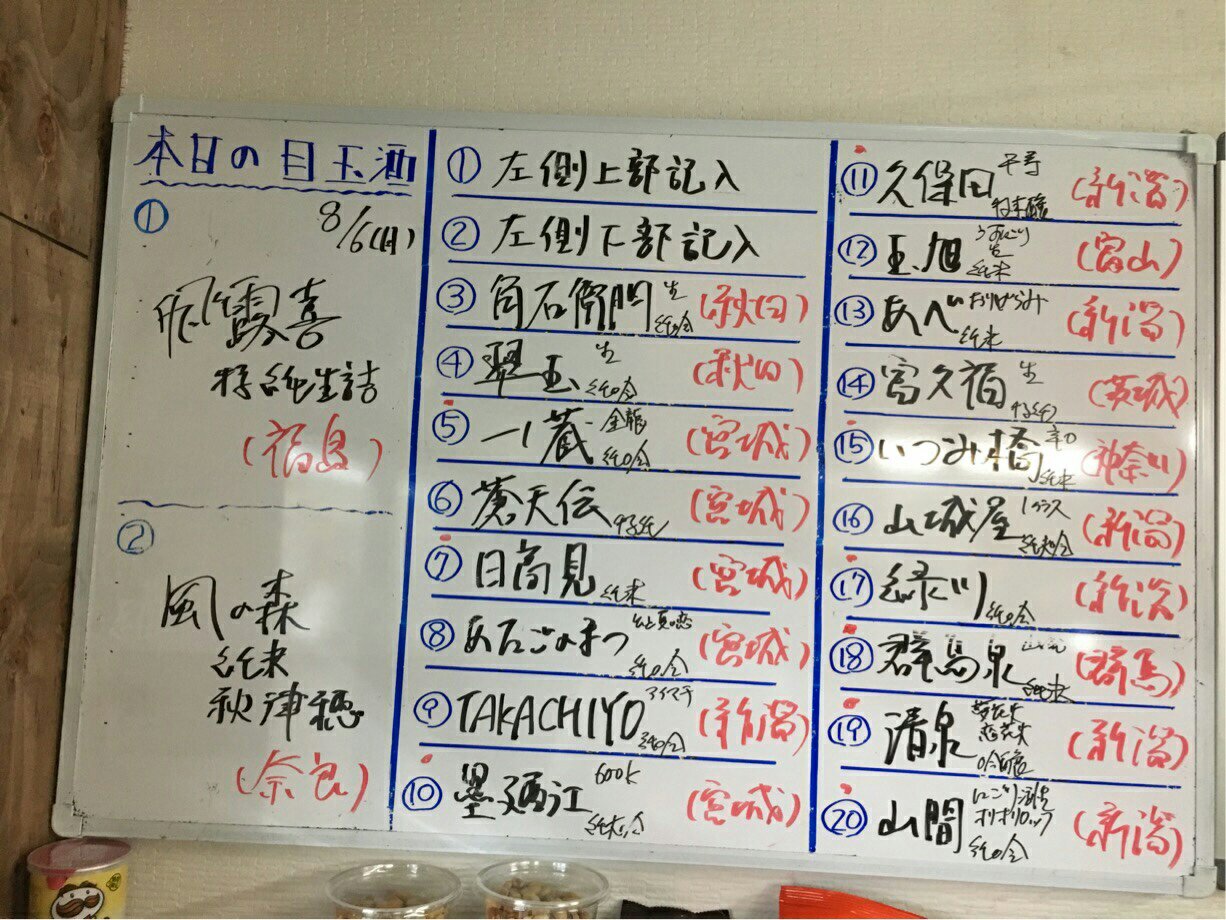 本日の目玉酒
① 8/6(月)
風露喜
特純生詰
(福島)
②
風の森
純米
秋津穂
(奈良)
① 左側上部記入
② 左側下部記入
③ 角右衛門 生 純吟 (秋田)
④ 翠玉 生 純吟 (秋田)
⑤ 一ノ蔵 金龍 純吟 (宮城)
⑥ 蒼天伝 特純 (宮城)
⑦ 日高見 純米 (宮城)
⑧ あたごのまつ 純吟 (宮城)
⑨ TAKACHIYO アイヤマ 純吟 (新潟)
⑩ 墨廼江 600k 純大吟 (宮城)
⑪ 久保田 (新潟)
⑫ 玉旭 うすにごり 生 純米 (富山)
⑬ あべ おりがらみ 純米 (新潟)
⑭ 富久福 生 特純 (茨城)
⑮ いづみ橋 辛口 純米 (神奈川)
⑯ 山城屋 1グラス 純大吟 (新潟)
⑰ 緑川 純吟 (新潟)
⑱ 群馬泉 純米 (群馬)
⑲ 清泉 吟醸 (新潟)
⑳ 山間 オリオリロック 純吟 (新潟)